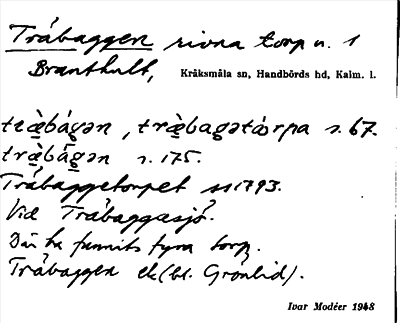 Tråbaggen rivna torp u. 1
Branthult, Kråksmåla sn, Handbörds hd, Kalm. l.
træ̀bágən, træ̀bagətɷrpa s. 67.
træ̀bágən s. 175.
Tråbaggetorpet 1793.
Vid Tråbaggasjö.
Där ha funnits fyra torp.
Tråbaggen ek (bl. Grönlid).
Ivar Modéer 1948